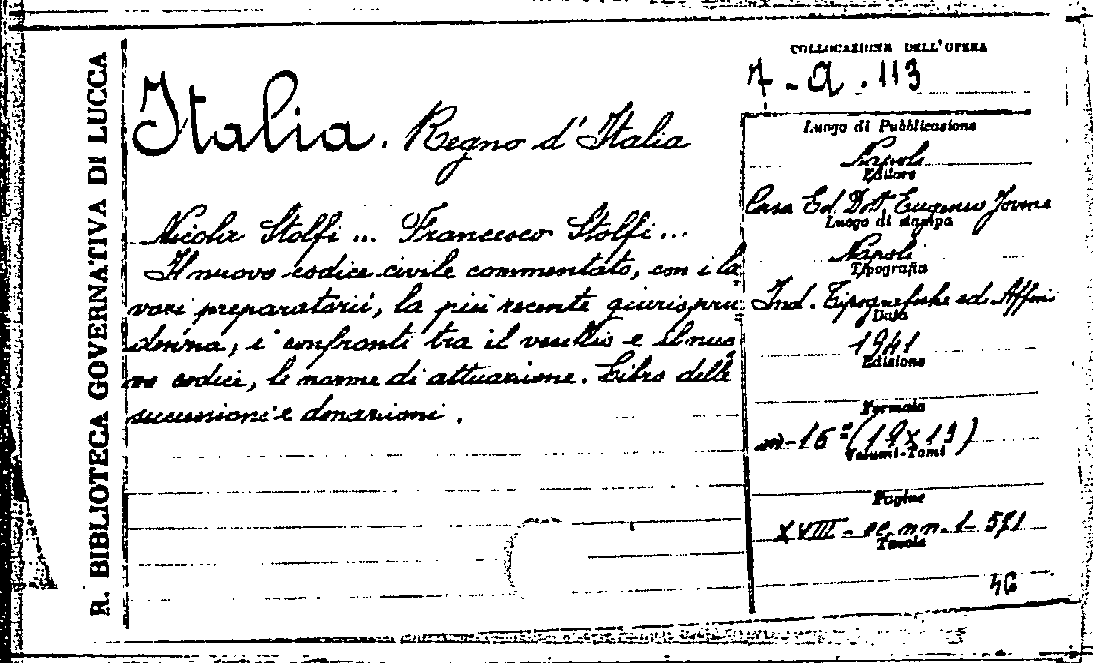 R. BIBLIOTECA GOVERNATIVA DI LUCCA
COLLOCAZIONE DELL'OPERA
7-a.113
Italia. Regno d'Italia
Nicola Stolfi ... Francesco Stolfi ...
Il nuovo codice civile commentato, con i la
vori preparatorii, la più recente giurispru
denza, i confronti tra il vecchio e il nuo
vo codici, le norme di attuazione. Libro delle
successioni e donazioni.
Luogo di Pubblicazione
Napoli
Editore
Casa Ed. Dott. Eugenio Jovene
Luogo di stampa
Napoli
Tipografia
Ind. Tipografiche ed Affini
Data
1941
Edizione
Formato
in-16° (19x13)
Volumi-Tomi
Pagine
XVIII - cc. nn. 1 - 571
Tavole
46